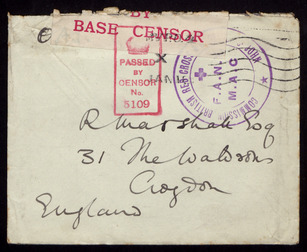 BY
BASE CENSOR
PASSED
BY
CENSOR
No.
5109
X
JAN
BRITISH RED CROSS
COMMISSION
F.A.N.Y.
M.A.C
R Marshall Esq
31 The Waldrons
Croydon
England